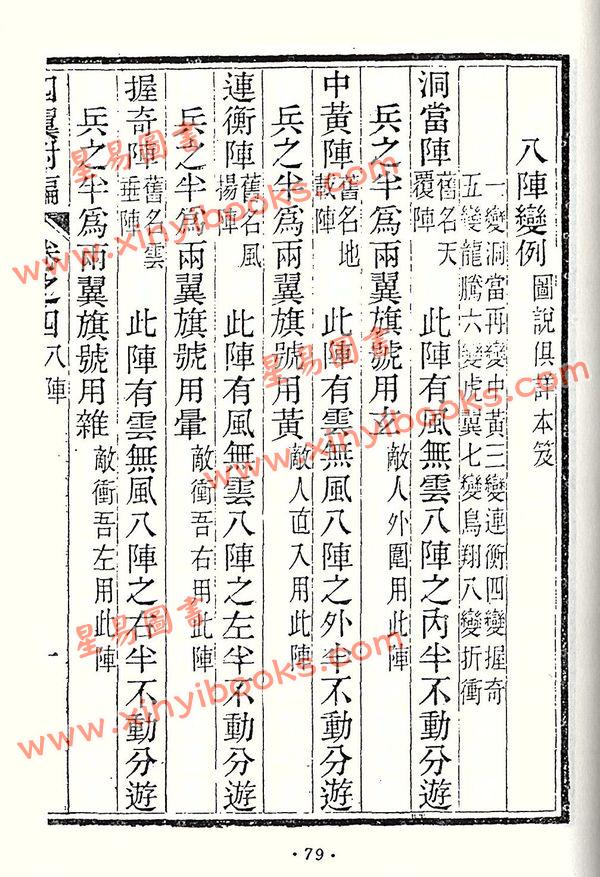 八陣變例 圖說俱詳本笈
一變洞當再變中黃三變連衡四變握奇
五變龍騰六變虎翼七變鳥翔八變折衝
洞當陣 舊名天覆陣 此陣有風無雲八陣之內半不動分遊
兵之半爲兩翼旗號用玄 敵人外圍用此陣
中黃陣 舊名地載陣 此陣有雲無風八陣之外半不動分遊
兵之半爲兩翼旗號用黃 敵人直入用此陣
連衡陣 舊名風揚陣 此陣有風無雲八陣之左半不動分遊
兵之半爲兩翼旗號用暈 敵衝吾右用此陣
握奇陣 舊名雲垂陣 此陣有雲無風八陣之右半不動分遊
兵之半爲兩翼旗號用雜 敵衝吾左用此陣
四翼附編 卷之四 八陣 一
·79·
星易圖書
www.xinyibooks.com
星易圖書
www.xinyibooks.com
星易圖書
www.xinyibooks.com